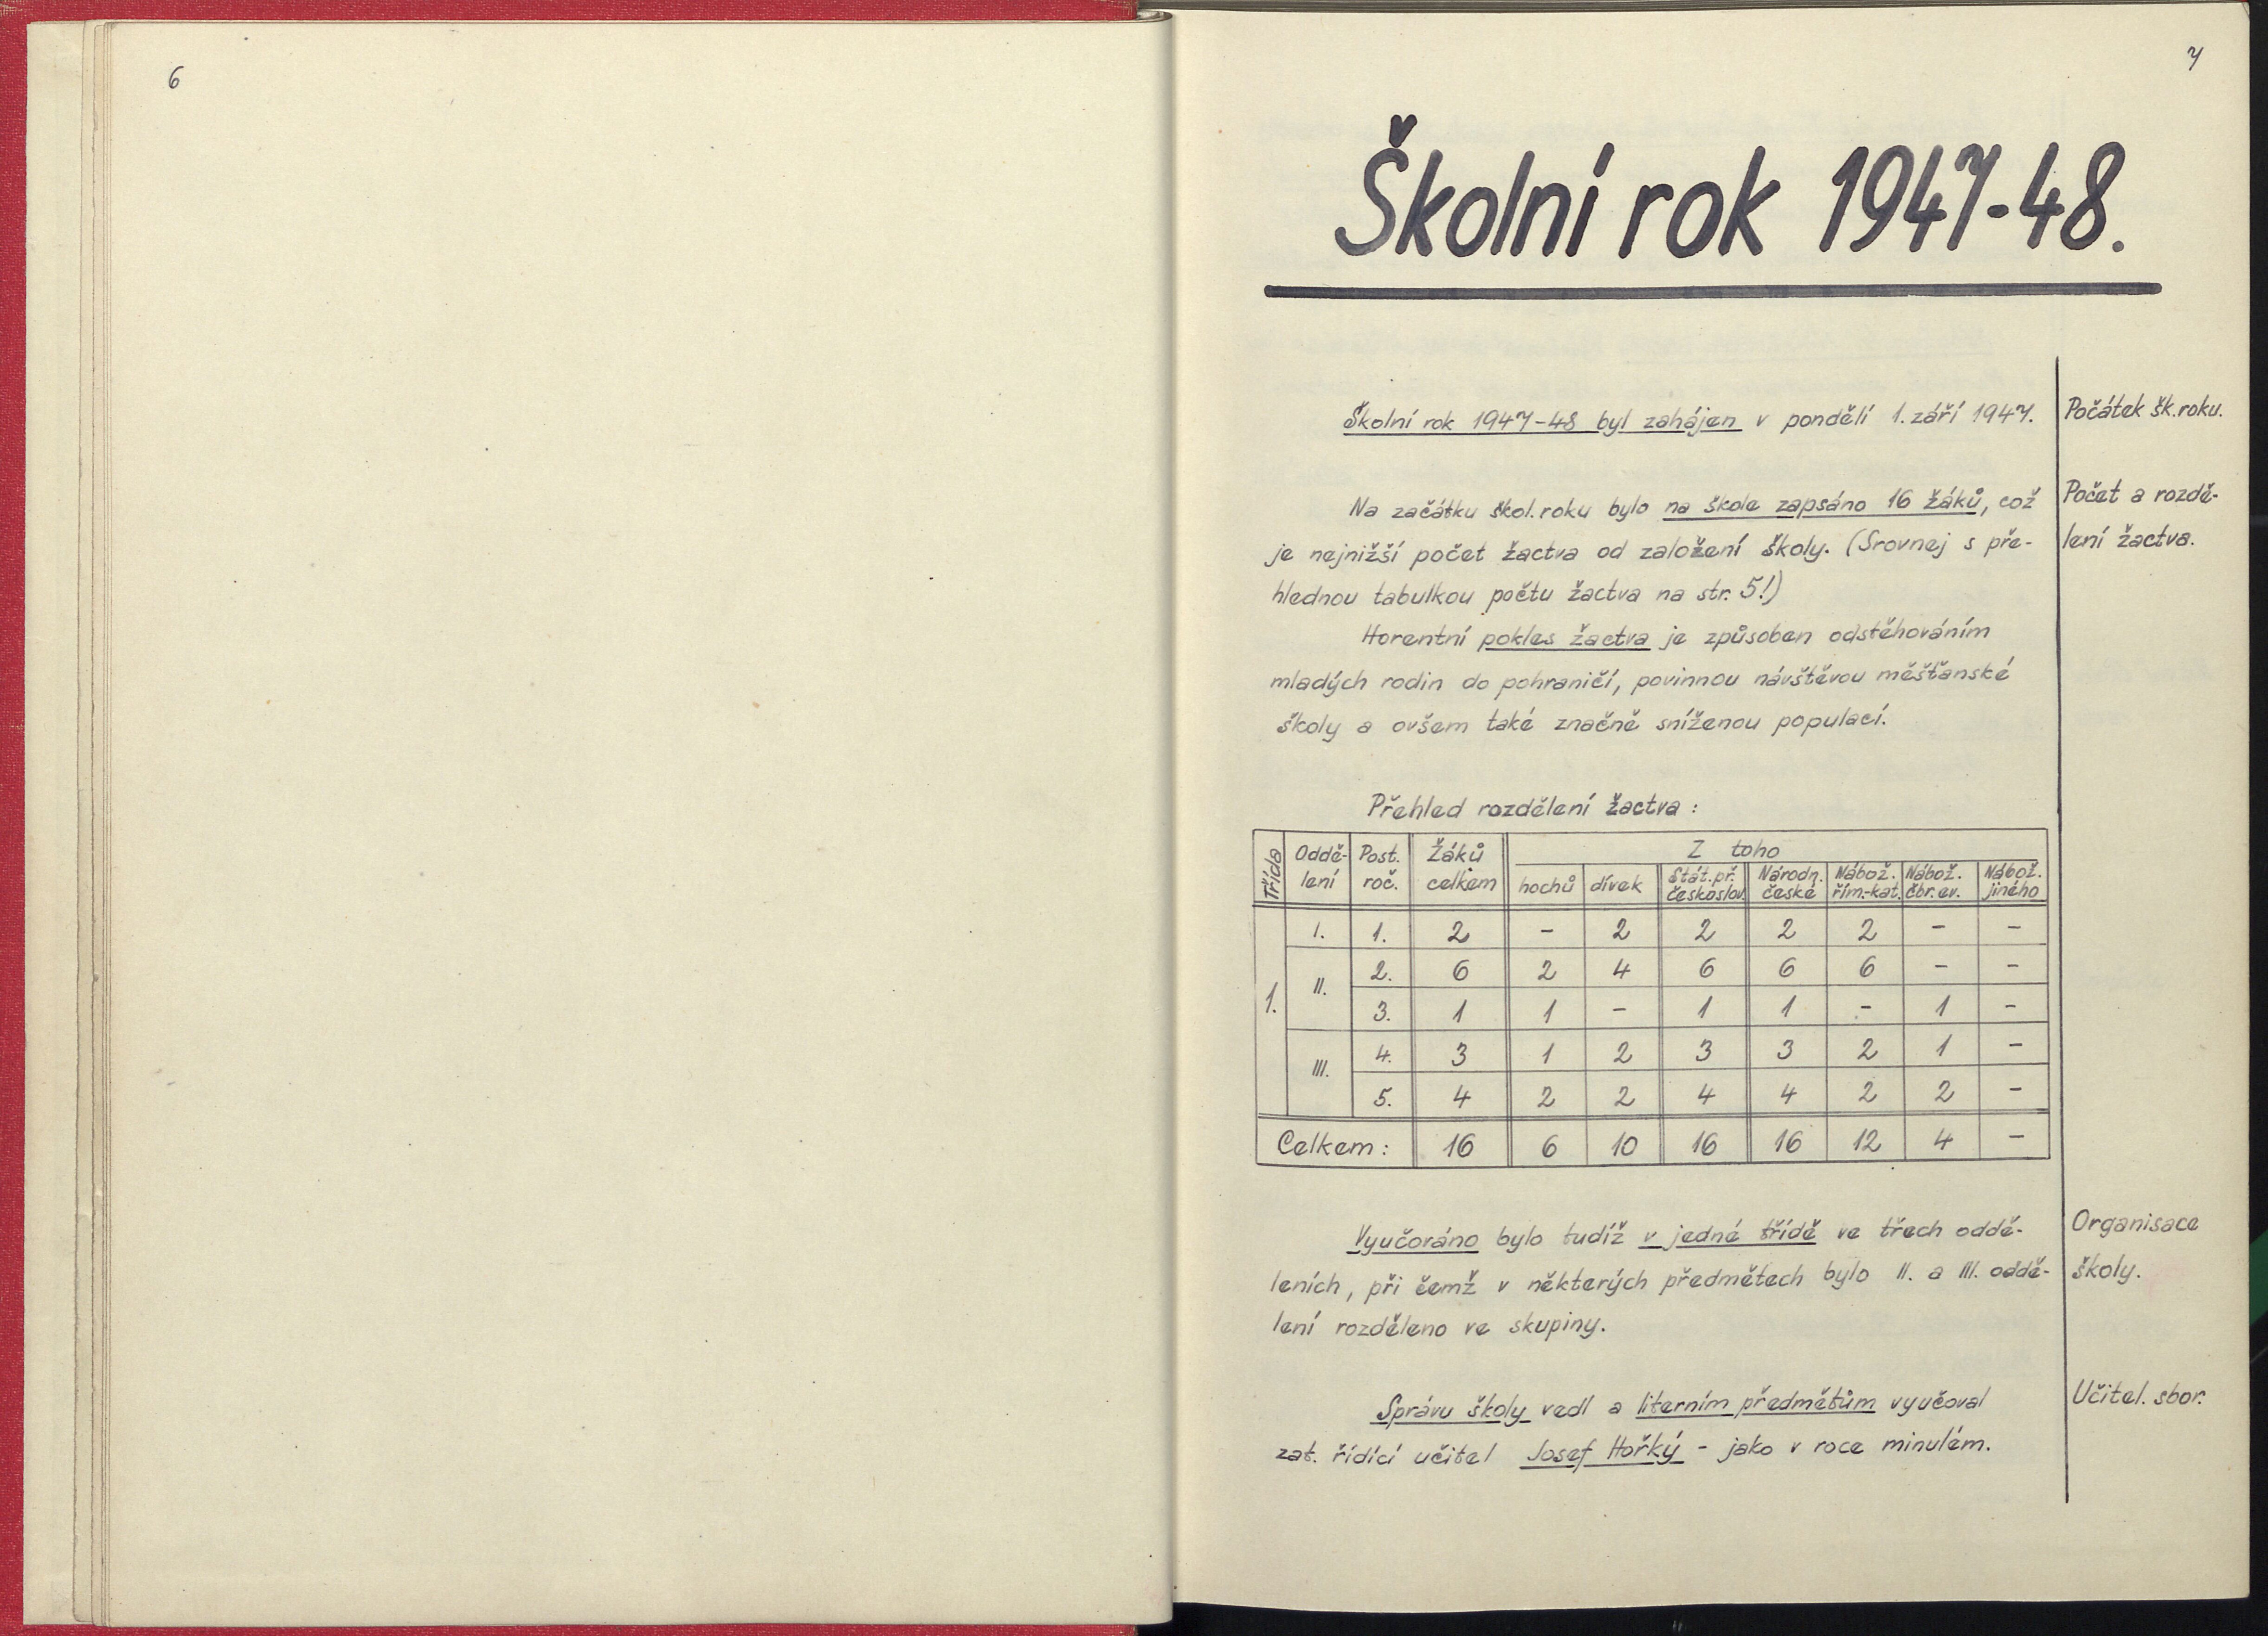 6
7
Školní rok 1947-48.
Školní rok 1947-48 byl zahájen v pondělí 1. září 1947.
Počátek šk. roku.
Na začátku škol. roku bylo na škole zapsáno 16 žáků, což
je nejnižší počet žactva od založení školy. (Srovnej s pře-
hlednou tabulkou počtu žactva na str. 5!)
Počet a rozdě-
lení žactva.
Horentní pokles žactva je způsoben odstěhováním
mladých rodin do pohraničí, povinnou návštěvou měšťanské
školy a ovšem také značně sníženou populací.
Přehled rozdělení žactva :
Třída Oddě-lení Post. roč. Žáků celkem Z toho
hochů dívek Stát. př. českoslov. Národn. české Nábož. řím.-kat. Nábož. čbr. ev. Nábož. jiného
1. I. 1. 2 - 2 2 2 2 - -
II. 2. 6 2 4 6 6 6 - -
3. 1 1 - 1 1 - 1 -
III. 4. 3 1 2 3 3 2 1 -
5. 4 2 2 4 4 2 2 -
Celkem : 16 6 10 16 16 12 4 -
Vyučováno bylo tudíž v jedné třídě ve třech oddě-
leních, při čemž v některých předmětech bylo II. a III. oddě-
lení rozděleno ve skupiny.
Organisace
školy.
Správu školy vedl a literním předmětům vyučoval
zat. řídící učitel Josef Hořký - jako v roce minulém.
Učitel. sbor.